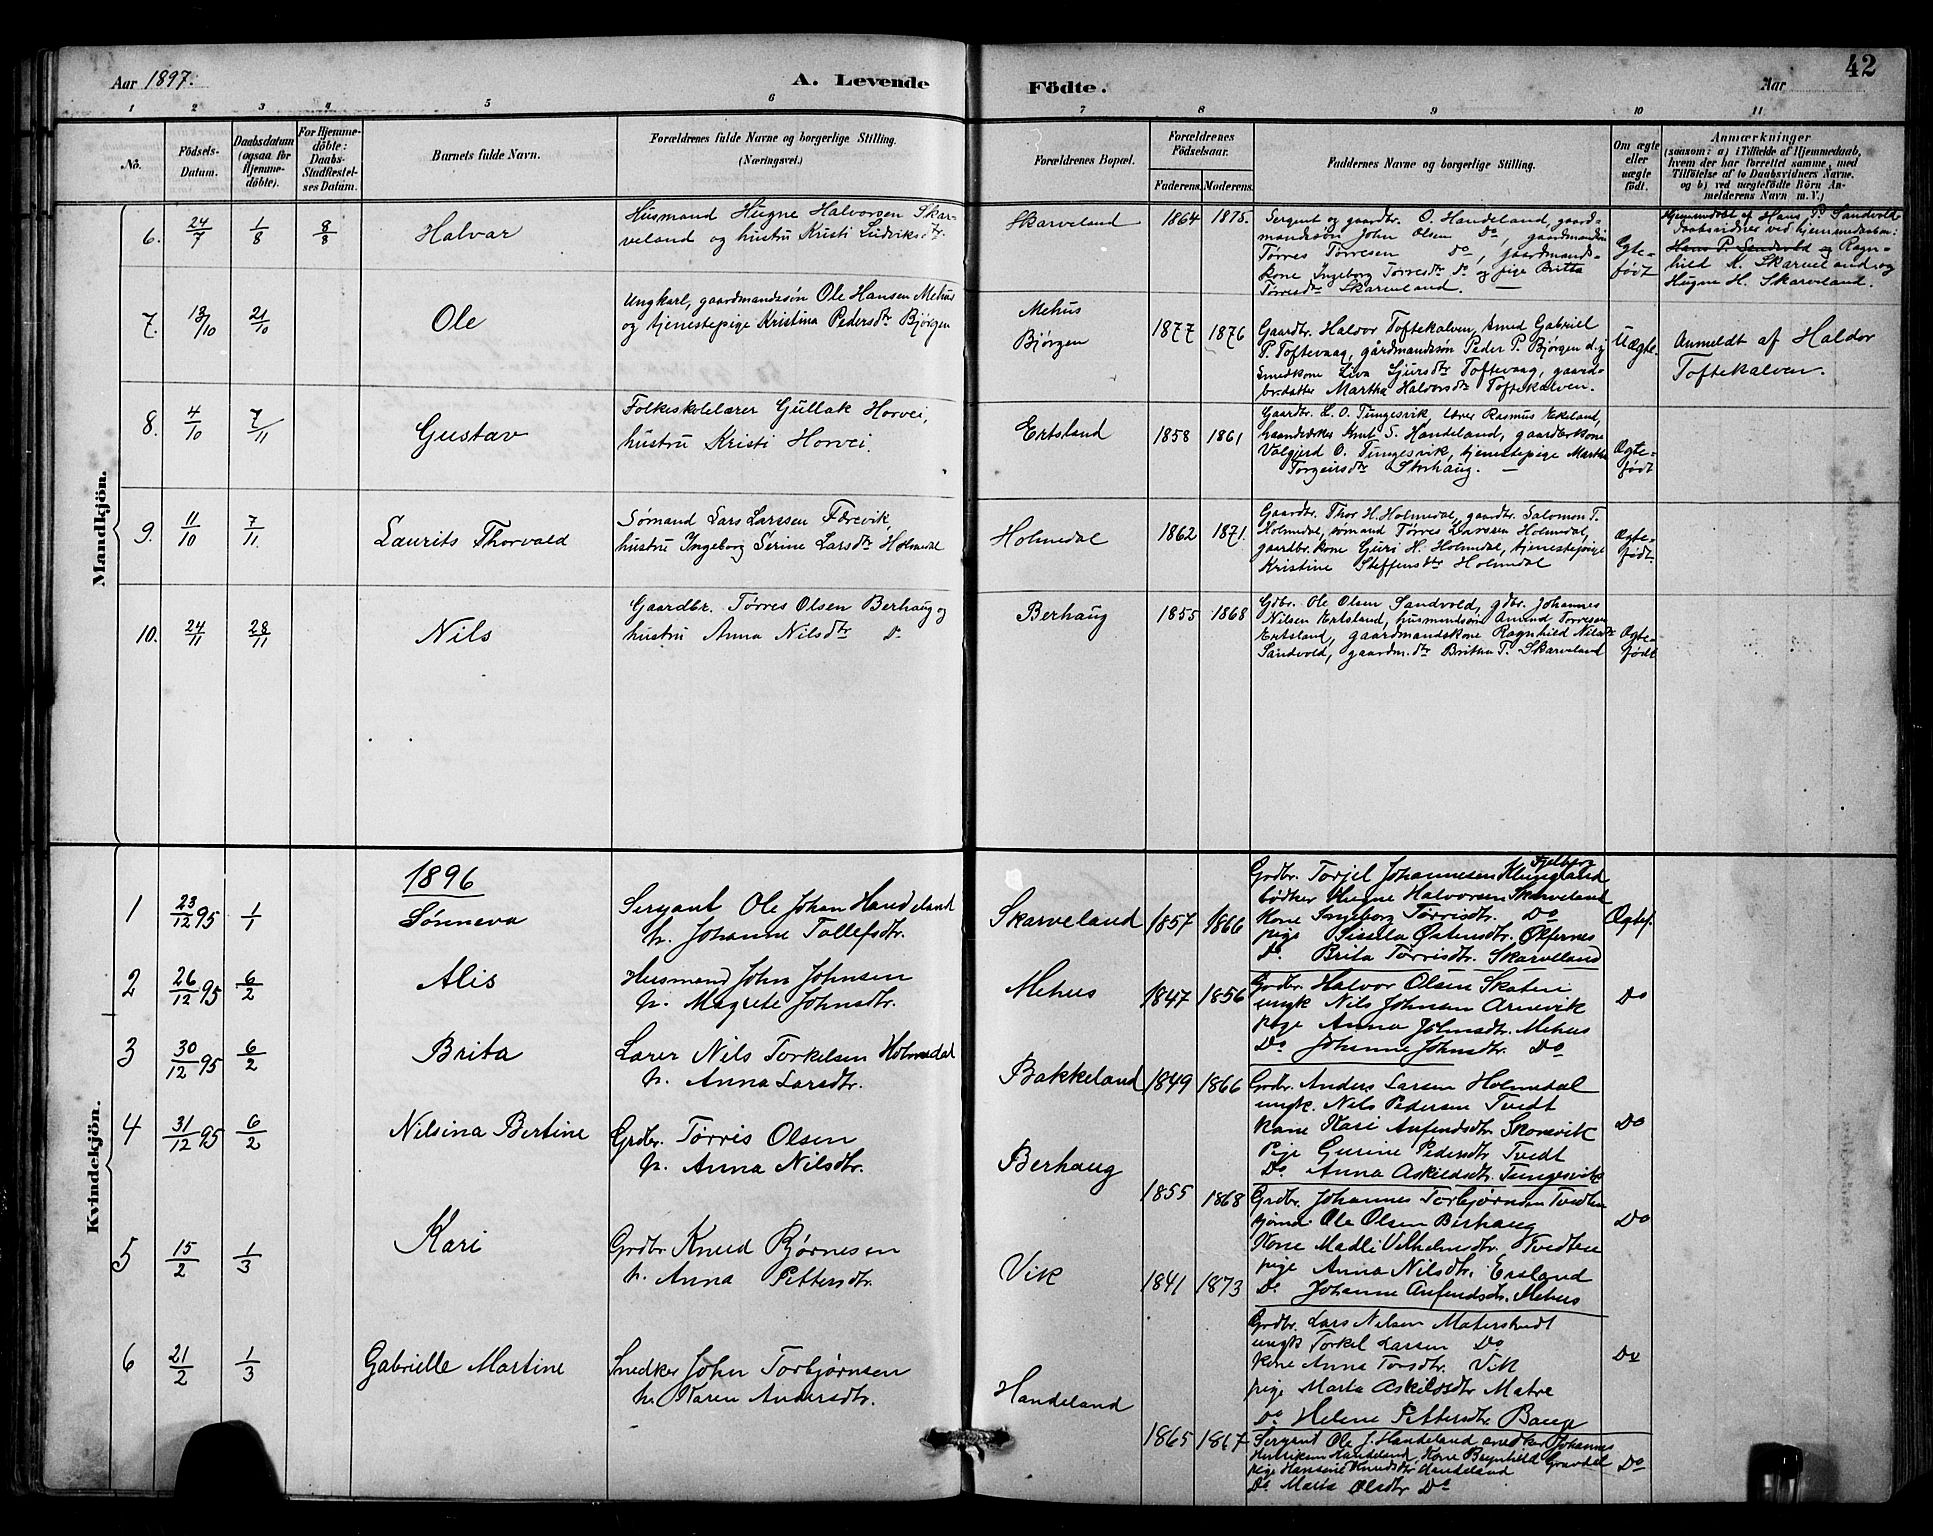 Aar 1897.
A. Levende
Födte.
Aar
42
1 2 3 4 5 6 7 8 9 10 11
No.
Födsels-
Datum.
Daabsdatum
(ogsaa for
Hjemme-
döbte).
For Hjemme-
döbte:
Daabs-
Stadfæstel-
ses Datum.
Barnets fulde Navn.
Forældrenes fulde Navne og borgerlige Stilling.
(Næringsvei.)
Forældrenes Bopæl.
Forældrenes
Födselsaar.
Faderens. Moderens.
Faddernes Navne og borgerlige Stilling.
Om ægte
eller
uægte
født.
Anmærkninger
(saasom: a) i Tilfælde af Hjemmedaab,
hvem der har forrettet samme, med
Tilföielse af to Daabsvidners Navne.
og b) ved uægtefödte Börn An-
melderens Navn m. V.)
Mandkjön.
6. 24/7 1/8 8/8 Halvar
Husmand Hugne Halvorsen Skar-
veland og hustru Kristi Ludviksdtr.
Skarveland 1864 1875.
Sergent og gaardbr. O. Handeland, gaard-
mandssøn John Olsen Do, gaardmandssøn
Tørres Tørresen Do, gaardmands-
kone Ingeborg Tørresdtr Do og pige Britta
Tørresdtr Skarveland.
Ægte-
født
Hjemmedøbt af Hans P. Sandvold
Daabsvidner ved hjemmedaaben:
Hans P. Sandvold og Ragn-
hild K. Skarveland og
Hugne H. Skarveland.
7. 13/10 21/10 Ole
Ungkarl, gaardmandssøn Ole Hansen Mehus
og tjenestepige Kristina Pedersdtr Bjørgen
Mehus
Bjørgen
1877 1876
Gaardbr. Haldor Toftekalven, smed Gabriel
P. Toftevaag, gårdmandssøn Peder P. Bjørgen d.y.
Smedkone Liva Sjursdtr Toftevaag, gaard-
br.datter Martha Halvorsdtr Toftekalven.
Uægte.
Anmeldt af Haldor
Toftekalven.
8. 4/10 7/11 Gustav
Folkeskolelærer Gullak Horvei,
hustru Kristi Horvei.
Ertsland 1858 1861
Gaardbr. L. O. Tungesvik, lærer Rasmus Ekeland,
haandverker Knut S. Handeland, gaardbr.kone
Valgjerd O. Tungesvik, tjenestepige Martha
Torgeirsdtr Storhaug.
Ægte-
født
9. 11/10 7/11. Laurits Thorvald
Sømand Lars Larssen Færevik,
hustru Ingeborg Serine Larsdtr Holmedal
Holmedal 1862 1871.
Gaardbr. Thor H. Holmedal, gaardbr. Salomon T.
Holmedal, sømand Tørres Larssen Holmedal,
gaardbr.kone Guri H. Holmedal, tjenestepige
Kristine Steffensdtr Holmedal
Ægte-
født.
10. 24/11 28/11 Nils
Gaardbr. Tørres Olsen Berhaug og
hustru Anna Nilsdtr Do
Berhaug 1855 1868
Gdbr. Ole Olsen Sandvold, gdbr. Johannes
Nilsen Ertsland, husmandssøn Amund Tørresen
Ertsland, gaardmandskone Ragnhild Nilsdtr
Sandvold, gaardm.dtr Britha T. Skarveland
Ægte-
født
Kvindekjön.
1896
1 23/12 95 1/1 Sønneva
Sergant Ole Johan Handeland
h. Johanne Tollefsdtr.
Skarveland 1857 1866
Grdbr. Torjel Johannesen Klungland Fjelberg
bødker Hugne Halvorsen Skarveland
Kone Ingeborg Tørrisdtr. Do
pige Sissela Østensdtr. Økfernes
Do. Brita Tørrisdtr. Skarveland
Ægtef.
2 26/12 95 6/2 Alis
Husmand John Johnsen
h. Magrete Johnsdtr.
Mehus 1847 1856
Grdbr. Halvor Olsen Skaten
ungk Nils Johnsen Arnevik
pige Anna Johnsdtr. Mehus
Do Johanne Johnsdtr. Do
Do
3 30/12 95 6/2 Brita
Lærer Nils Torkelsen Holmedal
h. Anna Larsdtr.
Bakkeland 1849 1866
Grdbr. Anders Larsen Holmedal
ungk. Nils Pedersen Tvedt
Kone Kari Anfindsdtr. Skonevik
Pige Gurine Pedersdtr Tvedt
Do. Anna Askildsdtr. Tungesvik
Do
4 31/12 95 6/2 Nilsina Bertine
Grdbr. Tørris Olsen
h. Anna Nilsdtr.
Berhaug 1855 1868
Grdbr. Johannes Torbjørnsen Tvedten
sjømd. Ole Olsen Berhaug
Kone Madli Vilhelmsdtr. Tvedten
pige Anna Nilsdtr. Ersland
Do. Johanne Anfindsdtr. Mehus
Do
5 15/2 1/3 Kari
Grdbr Knud Bjørnesen
h. Anna Pettersdtr.
Vik 1841 1873
Grdbr. Lars Nilsen Matertvedt
ungk Torkel Larsen Do
Kone Anna Torsdtr. Vik
pige Marta Askildsdtr Matre
Do Helene Pettersdtr Baug
Do
6 21/2 1/3 Gabrielle Martine
Snedker John Torbjørnsen
h. Karen Andersdtr.
Handeland 1865 1867
Sergeant Ole J. Handeland snedker Johannes
Henriksen Handeland, Kone Ragnhild Gravdal
pige Hansine Knudsdtr Handeland
Do Marta Olsdtr Do
Do